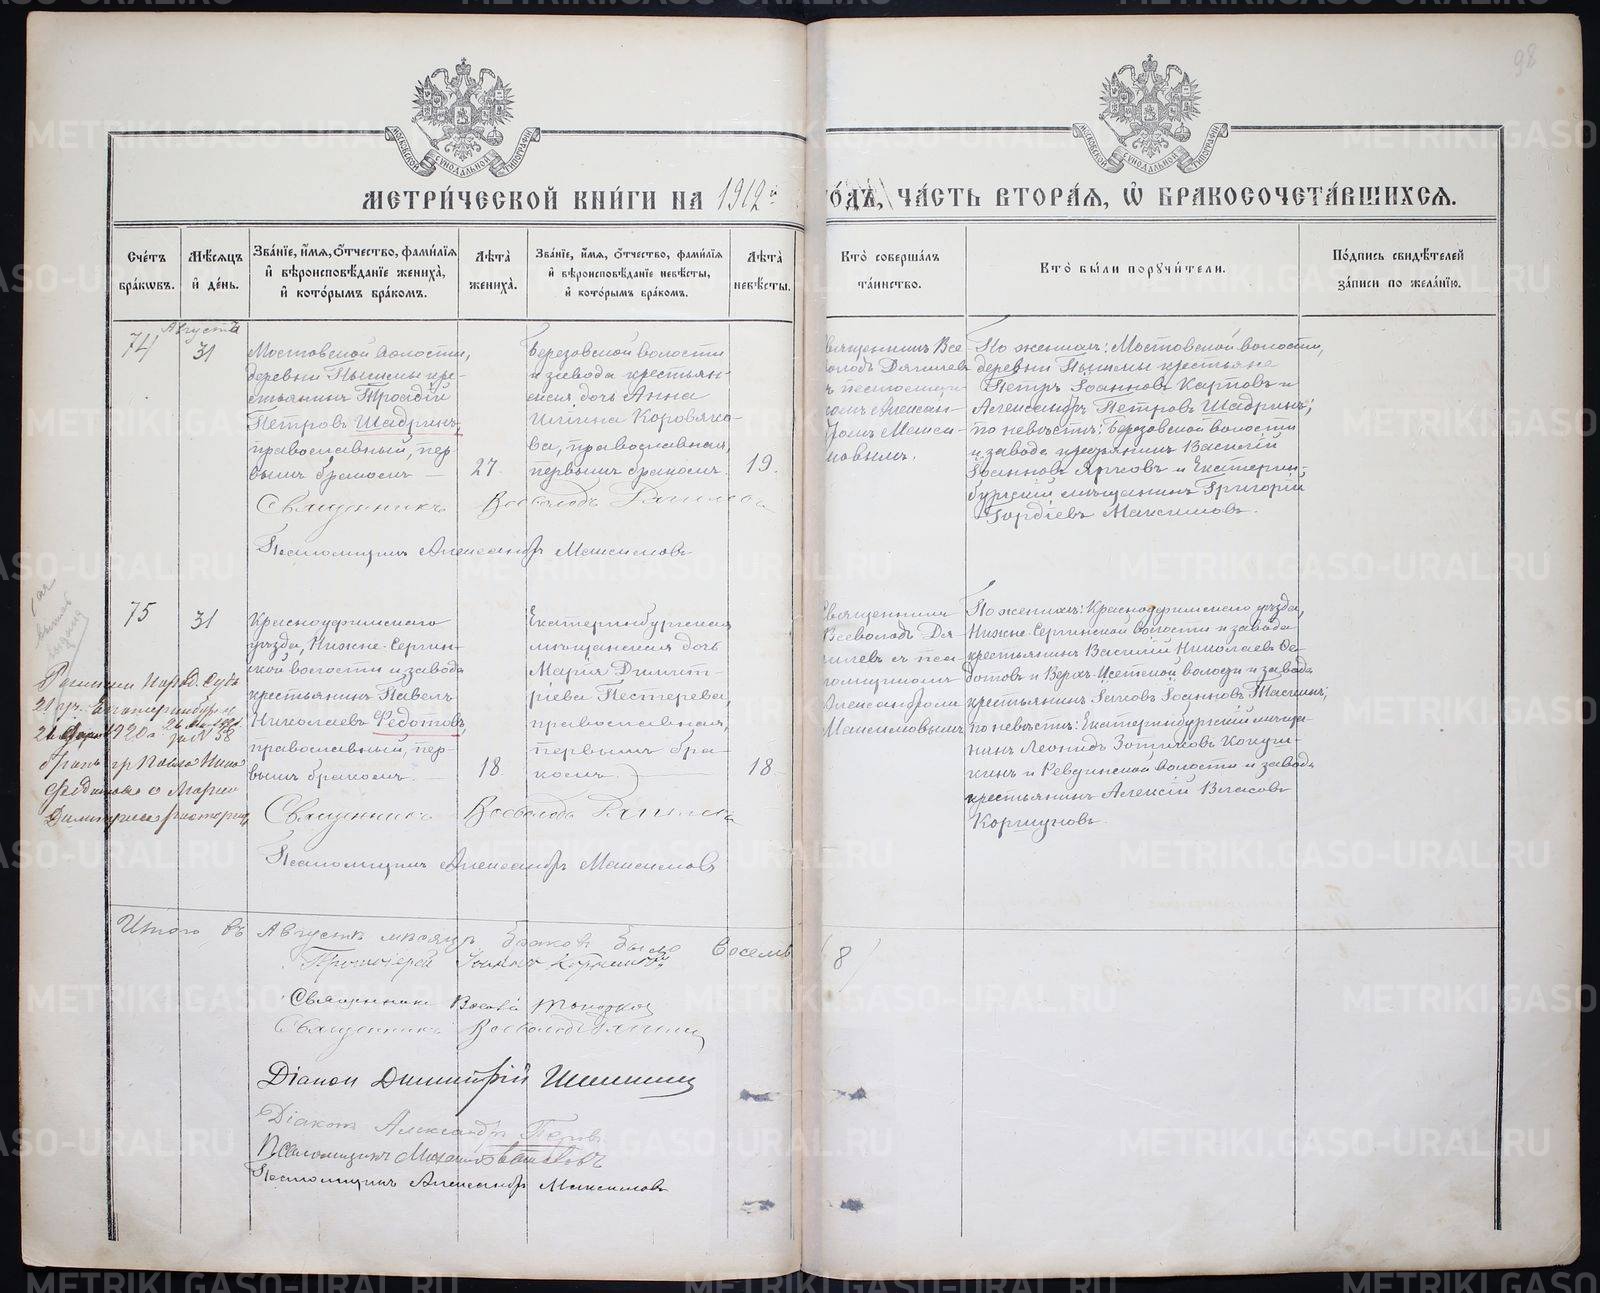 98
МОСКОВСКОЙ СѴНОДАЛЬНОЙ ТИПОГРАФІИ
МОСКОВСКОЙ СѴНОДАЛЬНОЙ ТИПОГРАФІИ
МЕТРИ́ЧЕСКОЙ КНИ́ГИ НА 1912й
ГО́ДЪ, ЧА́СТЬ ВТОРА́Я, Ѽ БРАКОСОЧЕТА́ВШИХСЯ.
Сче́тъ бра́кѡвъ.
Мѣ́сяцъ и҆ де́нь.
Зва́нїе, и҆́мя, ѻ҆́тчество, фами́лїя и҆ вѣроисповѣ́данїе жениха̀, и҆ кото́рымъ бра́комъ.
Лѣ́та жениха̀.
Зва́нїе, и҆́мя, ѻ҆́тчество, фами́лїя и҆ вѣроисповѣ́данїе невѣ́сты, и҆ кото́рымъ бра́комъ.
Лѣ́та невѣ́сты.
Кто̀ соверша́лъ та́инство.
Кто̀ бы́ли порꙋчи́тели.
По́дпись свидѣ́телей за́писи по жела́нїю.
74
Августа
31
Мостовской волости,
деревни Пышмы кре-
стьянинъ
Петровъ Шадринъ,
православный, пер-
вымъ бракомъ
27.
Березовской волости
и завода крестьян-
ская дочь Анна
Ильина Коровяко-
ва, православная,
первымъ бракомъ.
19.
Священникъ Все
володъ Дягилевъ
съ псаломщи-
комъ Алексан-
дромъ Макси-
мовымъ.
По женихѣ: Мостовской волости,
деревни Пышмы крестьяне
Петръ Іоанновъ Карповъ и
Александръ Петровъ Шадринъ;
по невѣстѣ: Березовской волости
и завода крестьянинъ Василій
Іоанновъ Ярковъ и Екатерин-
бургскій мѣщанинъ Григорій
Гордіевъ Максимовъ.
Священникъ Всеволодъ Дягилевъ
Псаломщикъ Александръ Максимовъ
75
31
Красноуфимскаго
уѣзда, Нижне-Сергин-
ской волости и завода
крестьянинъ Павелъ
Николаевъ Федотовъ,
православный, пер-
вымъ бракомъ.
18
Екатеринбургская
мѣщанская дочь
Марія Димит-
ріева Нестерева,
православная,
первымъ бра-
комъ.
18.
Священникъ
Всеволодъ Дя-
гилевъ съ пса-
ломщикомъ
Александромъ
Максимовымъ
По женихѣ: Красноуфимскаго уѣзда,
Нижне-Сергинской волости и завода
крестьянинъ Василій Николаевъ Фе-
дотовъ и Верхъ-Исетской волости и завода
крестьянинъ Іаковъ Іоанновъ
по невѣстѣ: Екатеринбургскій мѣща-
нинъ Леонидъ Зотиковъ
и Ревдинской волости и завода
крестьянинъ Алексій Власовъ
Коршуновъ.
Нар. Суда
21 уч. Екатеринбурга
1920 г. № 38
бракъ гр. Павла Нико
Федотова с Марией
Священникъ Всеволодъ Дягилевъ
Псаломщикъ Александръ Максимовъ
Итого въ Августѣ мѣсяцѣ браковъ было восемь (8)
Протоіерей Іоаннъ
Священникъ
Священникъ Всеволодъ Дягилевъ
Діаконъ Димитрій
Діаконъ Александръ
Псаломщикъ Михаилъ
Псаломщикъ Александръ Максимовъ
METRIKI.GASO-URAL.RU